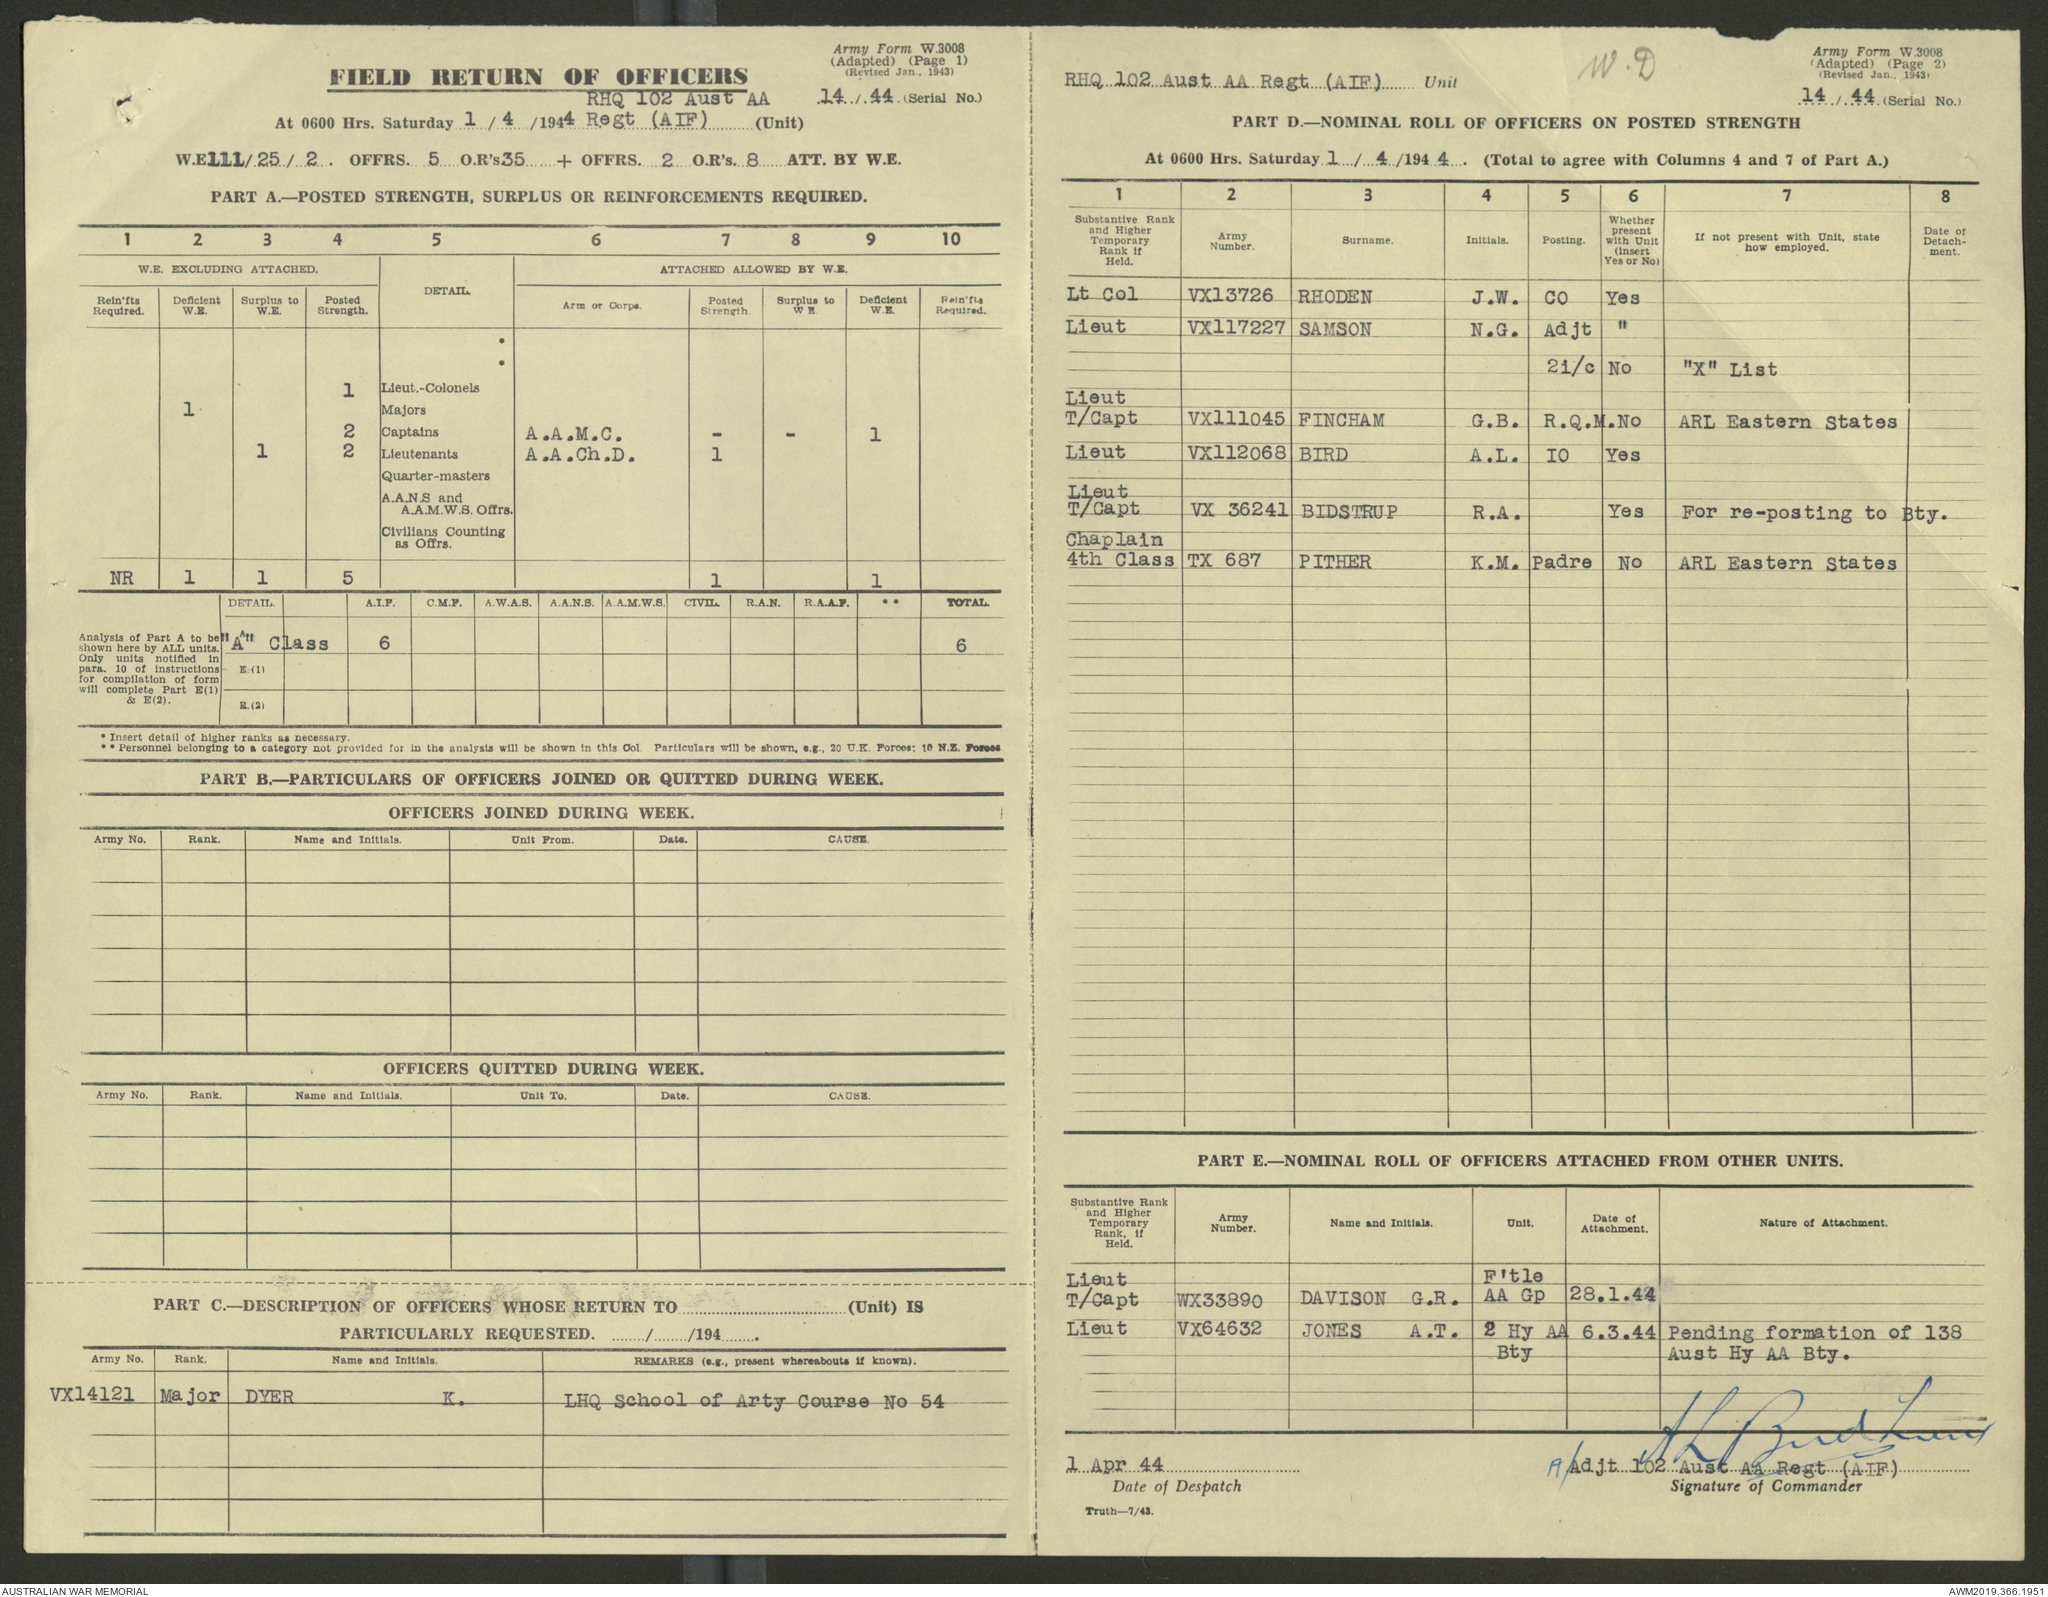 Army Form W.3008
(Adapted) (Page 1)
(Revised Jan., 1943)
FIELD RETURN OF OFFICERS
RHQ 102 Aust AA
14/44 (Serial No.)
At 0600 Hrs. Saturday 1/4/1944 Regt (AIF) (Unit)
W.E111/25/2. OFFRS. 5 O.R's35 + OFFRS. 2 O.R's. 8 ATT. BY W.E.
PART A.—POSTED STRENGTH, SURPLUS OR REINFORCEMENTS REQUIRED.
1 2 3 4 5 6 7 8 9 10
W.E. EXCLUDING ATTACHED. DETAIL. ATTACHED ALLOWED BY W.E.
Rein'fts Required. Deficient W.E. Surplus to W.E. Posted Strength. Arm or Corps. Posted Strength. Surplus to W E. Deficient W.E. Rein'fts Required.
*
*
1 Lieut.-Colonels
1 Majors
2 Captains A.A.M.C. - - 1
1 2 Lieutenants A.A.Ch.D. 1
Quarter-masters
A.A.N.S and
A.A.M.W.S. Offrs.
Civilians Counting
as Offrs.
NR 1 1 5 1 1
DETAIL. A.I.F. C.M.F. A.W.A.S. A.A.N.S. A.A.M.W.S. CIVIL. R.A.N. R.A.A.F. ** TOTAL.
Analysis of Part A to be
shown here by ALL units.
Only units notified in
para. 10 of instructions
for compilation of form
will complete Part E(1)
& E(2).
"A" Class 6 6
E.(1)
E.(2)
* Insert detail of higher ranks as necessary.
** Personnel belonging to a category not provided for in the analysis will be shown in this Col. Particulars will be shown, e.g., 20 U.K. Forces; 10 N.Z. Forces
PART B.—PARTICULARS OF OFFICERS JOINED OR QUITTED DURING WEEK.
OFFICERS JOINED DURING WEEK.
Army No. Rank. Name and Initials. Unit From. Date. CAUSE.
OFFICERS QUITTED DURING WEEK.
Army No. Rank. Name and Initials. Unit To. Date. CAUSE.
PART C.—DESCRIPTION OF OFFICERS WHOSE RETURN TO (Unit) IS
PARTICULARLY REQUESTED. / /194 .
Army No. Rank. Name and Initials. REMARKS (e.g., present whereabouts if known).
VX14121 Major DYER K. LHQ School of Arty Course No 54
W.D
Army Form W.3008
(Adapted) (Page 2)
(Revised Jan., 1943)
RHQ 102 Aust AA Regt (AIF) Unit
14/44 (Serial No.)
PART D.—NOMINAL ROLL OF OFFICERS ON POSTED STRENGTH
At 0600 Hrs. Saturday 1/4/1944. (Total to agree with Columns 4 and 7 of Part A.)
1 2 3 4 5 6 7 8
Substantive Rank and Higher Temporary Rank if Held. Army Number. Surname. Initials. Posting. Whether present with Unit (insert Yes or No) If not present with Unit, state how employed. Date of Detach-ment.
Lt Col VX13726 RHODEN J.W. CO Yes
Lieut VX117227 SAMSON N.G. Adjt "
2i/c No "X" List
Lieut
T/Capt VX111045 FINCHAM G.B. R.Q.M. No ARL Eastern States
Lieut VX112068 BIRD A.L. IO Yes
Lieut
T/Capt VX 36241 BIDSTRUP R.A. Yes For re-posting to Bty.
Chaplain
4th Class TX 687 PITHER K.M. Padre No ARL Eastern States
PART E.—NOMINAL ROLL OF OFFICERS ATTACHED FROM OTHER UNITS.
Substantive Rank and Higher Temporary Rank, if Held. Army Number. Name and Initials. Unit. Date of Attachment. Nature of Attachment.
Lieut F'tle
T/Capt WX33890 DAVISON G.R. AA Gp 28.1.44
Lieut VX64632 JONES A.T. 2 Hy AA 6.3.44 Pending formation of 138
Bty Aust Hy AA Bty.
A L Bird Lieut
1 Apr 44 A/Adjt 102 Aust AA Regt (AIF)
Date of Despatch Signature of Commander
Truth—7/43.
AUSTRALIAN WAR MEMORIAL AWM2019.366.1951